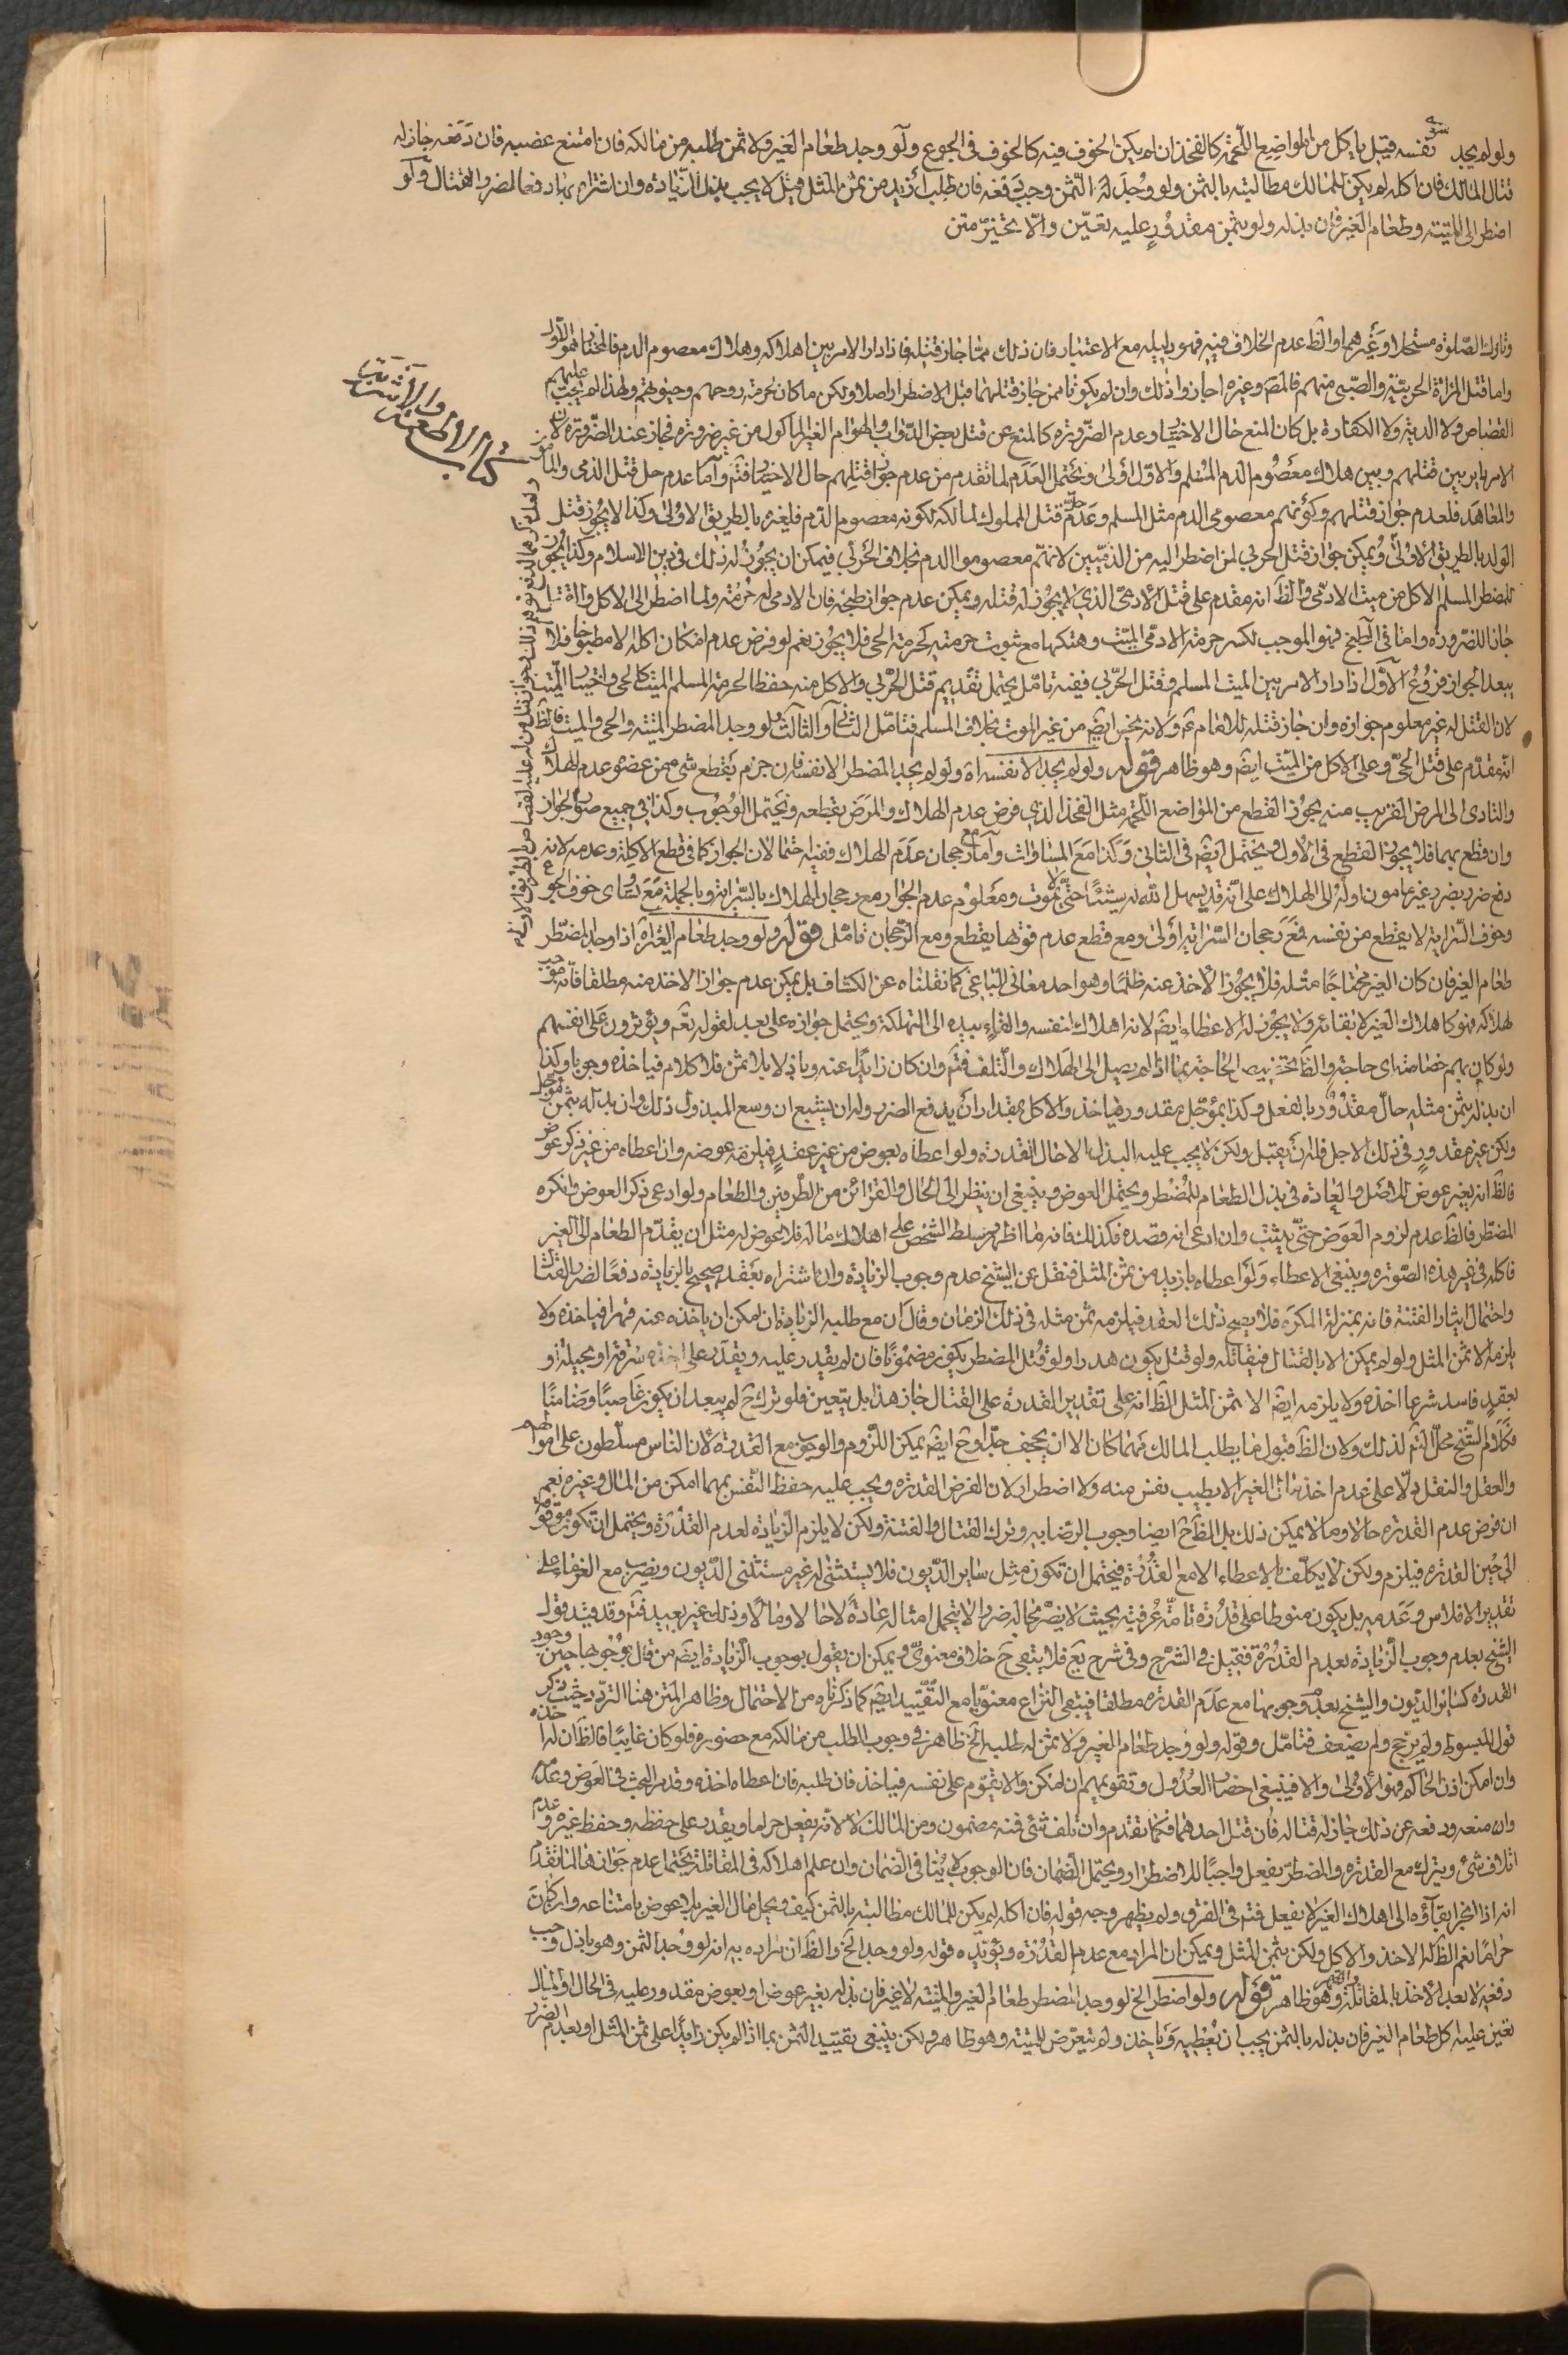 ولو لم يجد سوى نفسه قيل ياكل من المواضع اللحمة كالفخذ ان لم يكن الخوف فيه كالخوف في الجوع ولو وجد طعام الغير ولا ثمن طلبه من مالكه فان امتنع غصبه فان دفعه جاز له
قتال المالك فان اكله لم يكن للمالك مطالبته بالثمن ولو وجد له الثمن وجب دفعه فان طلب ازيد من ثمن المثل قيل لا يجب بذل الزيادة وان اشتراه بها دفعا لضرر القتال ولو
اضطر الى الميتة وطعام الغير فان بذله ولو بثمن مقدور عليه تعين والا تخير متن
وتارك الصلوة مستحلا وغيرهما والظ عدم الخلاف فيه فهو دليله مع الاعتبار فان ذلك مما جاز قتله فاذا دار الامر بين اهلاكه وهلاك معصوم الدم فالمختار هو الاول
كتاب الاطعمة والاشربة
واما قتل المراة الحربية والصبي منهم فالمص وغيره اجازوا ذلك وان لم يكونا ممن جاز قتلهما قبل الاضطرار اصلا ولكن ما كان لحرمة روحهم وحيوتهم ولهذا لم يجب عليهم
القصاص ولا الدية ولا الكفارة بل كان المنع حال الاختيار وعدم الضرورة كالمنع عن قتل بعض الدواب والهوام الغير الماكول من غير ضرورة فجاز عند الضرورة لان
الامر دار بين قتلهم وبين هلاك معصوم الدم المسلم والاول اولى ويحتمل العدم لما تقدم من عدم جواز قتلهم حال الاختيار فتم واما عدم حل قتل الذمي
والمعاهد فلعدم جواز قتلهم وكونهم معصومي الدم مثل المسلم وعدم حل قتل المملوك لمالكه لكونه معصوم الدم فلغيره بالطريق الاولى وكذا لا يجوز قتل
الولد بالطريق الاولى ويمكن جواز قتل الحربي لمن اضطر اليه من الذميين لانهم معصوموا الدم بخلاف الحربي فيمكن ان يجوز له ذلك في دين الاسلام وكذا يجوز
للمضطر المسلم الاكل من ميت الادمي والظ انه مقدم على قتل الادمي الذي لا يجوز له قتله ويمكن عدم جواز طبخه فان الادمي له حرمة ولما اضطر الى الاكل
جاز للضرورة واما في الطبخ فهو الموجب لكسر حرمة الادمي الميت وهتكها مع ثبوت حرمته كحرمة الحي فلا يجوز نعم لو فرض عدم امكان اكله الا مطبوخا فلا
يبعد الجواز فروع الاول اذا دار الامر بين الميت المسلم وقتل الحربي ففيه تامل يحتمل تقديم قتل الحربي والاكل منه حفظا لحرمة المسلم الميت كالحي واختيار الميت
لان القتل له غير معلوم جوازه وان جاز قتله للامام ع ولانه نجس ايض من غير الموت بخلاف المسلم فتامل الثاني والثالث لو وجد المضطر الميتة والحي والميت فالظ
انه مقدم على قتل الحي وعلى الاكل من الميت ايض وهو ظاهر قوله ولو لم يجد الا نفسه اه ولو لم يجد المضطر الا نفسه فان جزم بقطع شيء من عضو عدم الهلاك
والتادي الى المرض القريب منه يجوز القطع من المواضع اللحمة مثل الفخذ الذي فرض عدم الهلاك والمرض بقطعه ويحتمل الوجوب وكذا في جميع صور الجواز
وان قطع بهما فلا يجوز القطع في الاول ويحتمل ايض في الثاني وكذا مع المساوات واما مع رجحان عدم الهلاك ففيه احتمالان الجواز كما في قطع الاكلة وعدمه لانه
دفع ضرر بضرر غير مامون اوله الى الهلاك على انه قد يسهل الله له شيئا حتى لا يموت ومعلوم عدم الجواز مع رجحان الهلاك بالسراية وبالجملة مع تساوي خوف الجوع
وخوف السراية لا يقطع من نفسه فمع رجحان السراية اولى ومع قطع عدم فوتها يقطع ومع الرجحان تامل قوله ولو وجد طعام الغير اه اذا وجد المضطر
طعام الغير فان كان الغير محتاجا مثله فلا يجوز الاخذ عنه ظلما وهو احد معاني الباغي كما نقلناه عن الكشاف بل يمكن عدم جواز الاخذ منه مطلقا فانه موجب
لهلاكه فهو كاهلاك الغير لابقائه ولا يجوز له الاعطاء ايض لانه اهلاك لنفسه والقاء بيده الى التهلكة ويحتمل جوازه على بعد لقوله تعم ويؤثرون على انفسهم
ولو كان بهم خصاصة اى حاجة والظ تخصيص الحاجة بما اذا لم يصل الى الهلاك والتلف فتم وان كان زايدا عنه وباذلا بلا ثمن فلا كلام فياخذه وجوبا وكذا
ان بذله بثمن مثله حال مقدور بالفعل وكذا بمؤجل مقدور فياخذ والاكل بمقدار ان يدفع الضرر وله ان يشبع ان وسع المبذول ذلك وان بذله بثمن مؤجل
ولكن غير مقدور في ذلك الاجل فله ان يقبل ولكن لا يجب عليه البذل الا حال القدرة ولو اعطاه بعوض من غير عقد فيلزمه عوضه وان اعطاه من غير ذكر عوض
فالظ انه بغير عوض للاصل والعادة في بذل الطعام للمضطر ويحتمل العوض وينبغي ان ينظر الى الحال والقرائن من الطرفين والطعام ولو ادعى ذكر العوض وانكره
المضطر فالظ عدم لزوم العوض حتى يثبت وان ادعى انه قصده فكذلك فانه ما اظهر وسلط الشخص على اهلاك ماله فلا عوض له مثل ان يقدم الطعام الى الغير
فاكله في غير هذه الصورة وينبغي الاعطاء ولو اعطاه بازيد من ثمن المثل فنقل عن الشيخ عدم وجوب الزيادة وان اشتراه بعقد صحيح بالزيادة دفعا لضرر القتال
واحتمال ايثار الفتنة فانه بمنزلة المكره فلا يصح ذلك العقد فيلزمه ثمن مثله في ذلك الزمان وقال ان مع طلبه الزيادة ان امكن ان ياخذه عنه قهرا فياخذه ولا
يلزمه الا ثمن المثل ولو لم يمكن الا بالقتال فيقاتله ولو قتل يكون هدرا ولو قتل المضطر يكون مضمونا فان لم يقدر عليه ويقدر على اخذه سرقة او بحيلة او
بعقد فاسد شرعا اخذه ولا يلزمه ايض الا ثمن المثل الظ انه على تقدير القدرة على القتال جاز هذا بل يتعين فلو ترك ح لم يبعد ان يكون غاصبا وضامنا
فكلام الشيخ محل التم لذلك ولان الظ قبول ما يطلب المالك مهما كان الا ان يجحف جدا وح ايض يمكن اللزوم والوجوب مع القدرة لان الناس مسلطون على اموالهم
والعقل والنقل دلا على عدم اخذ مال الغير الا بطيب نفس منه ولا اضطرار لان الفرض القدرة ويجب عليه حفظ النفس بمهما امكن من المال وغيره نعم
ان فرض عدم القدرة حالا ومالا يمكن ذلك بل الظ ح ايضا وجوب الرضا به وترك القتال والفتنة ولكن لا يلزم الزيادة لعدم القدرة ويحتمل ان تكون موقوفة
الى حين القدرة فيلزم ولكن لا يكلف بالاعطاء الا مع القدرة فيحتمل ان تكون مثل ساير الديون فلا يستثنى له غير مستثنى الديون ويضرب مع الغرماء على
تقدير الافلاس وعدمه بل يكون منوطا على قدرة تامة عرفية بحيث لا يضر بحاله ضررا لا يتحمل امثاله عادة لا حالا ولا مالا وذلك غير بعيد فتم وقد قيد قول
الشيخ بعدم وجوب الزيادة بعدم القدرة فقيل في الشرح وفي شرح يع فلا يبقى ح خلاف معنوي ويمكن ان يقول بوجوب الزيادة ايض من قال بوجوبها حين وجود
القدرة كساير الديون والشيخ بعدم وجوبها مع عدم القدرة مطلقا فيبقى النزاع معنويا مع التقييد ايض كما ذكرناه من الاحتمال وظاهر المتن هنا التردد حيث ذكر
قول المبسوط ولم يرجح ولم يضعف فتامل وقوله ولو وجد طعام الغير ولا ثمن له طلبه الخ ظاهر في وجوب الطلب من مالكه مع حضوره فلو كان غايبا فالظ ان له اخذه
وان امكن اذن الحاكم فهو الاولى والا فينبغي احضار العدول وتقويمهم ان امكن والا يقوم على نفسه فياخذ فان طلبه فان اعطاه اخذه وقد مر البحث في العوض وعدمه
وان منعه ودفعه عن ذلك جاز له قتاله فان قتل احدهما فكما تقدم وان تلف شئ فمنه مضمون ومن المالك لا لانه يفعل حراما ويقدر على حفظه وحفظ غيره وعدم
اتلاف شئ ويترك مع القدرة والمضطر يفعل واجبا للاضطرار ويحتمل الضمان فان الوجوب لا ينافي الضمان وان علم اهلاكه في المقاتلة يحتمل عدم جوازها لما تقدم
انه اذا انجر بقاؤه الى اهلاك الغير لا يفعل فتم في الفرق ولم يظهر وجه قوله فان اكله لم يكن للمالك مطالبته بالثمن كيف ويحل مال الغير بلا عوض بامتناعه وان كان
حراما نعم الظ له الاخذ والاكل ولكن بثمن المثل ويمكن ان المراد مع عدم القدرة ويؤيده قوله ولو وجد الخ والظ ان مراده به انه لو وجد الثمن وهو باذل وجب
دفعه لا بعد الاخذ بالمقاتلة والقهر وهو ظاهر قوله ولو اضطر الخ لو وجد المضطر طعام الغير والميتة لا غير فان بذله بغير عوض او بعوض مقدور عليه في الحال او المال
تعين عليه اكل طعام الغير فان بذله بالثمن يجب ان يعطيه وياخذ ولم يتعرض للميتة وهو ظاهر ولكن ينبغي تقييد الثمن بما اذا لم يكن زايدا على ثمن المثل او بعدم الضرر